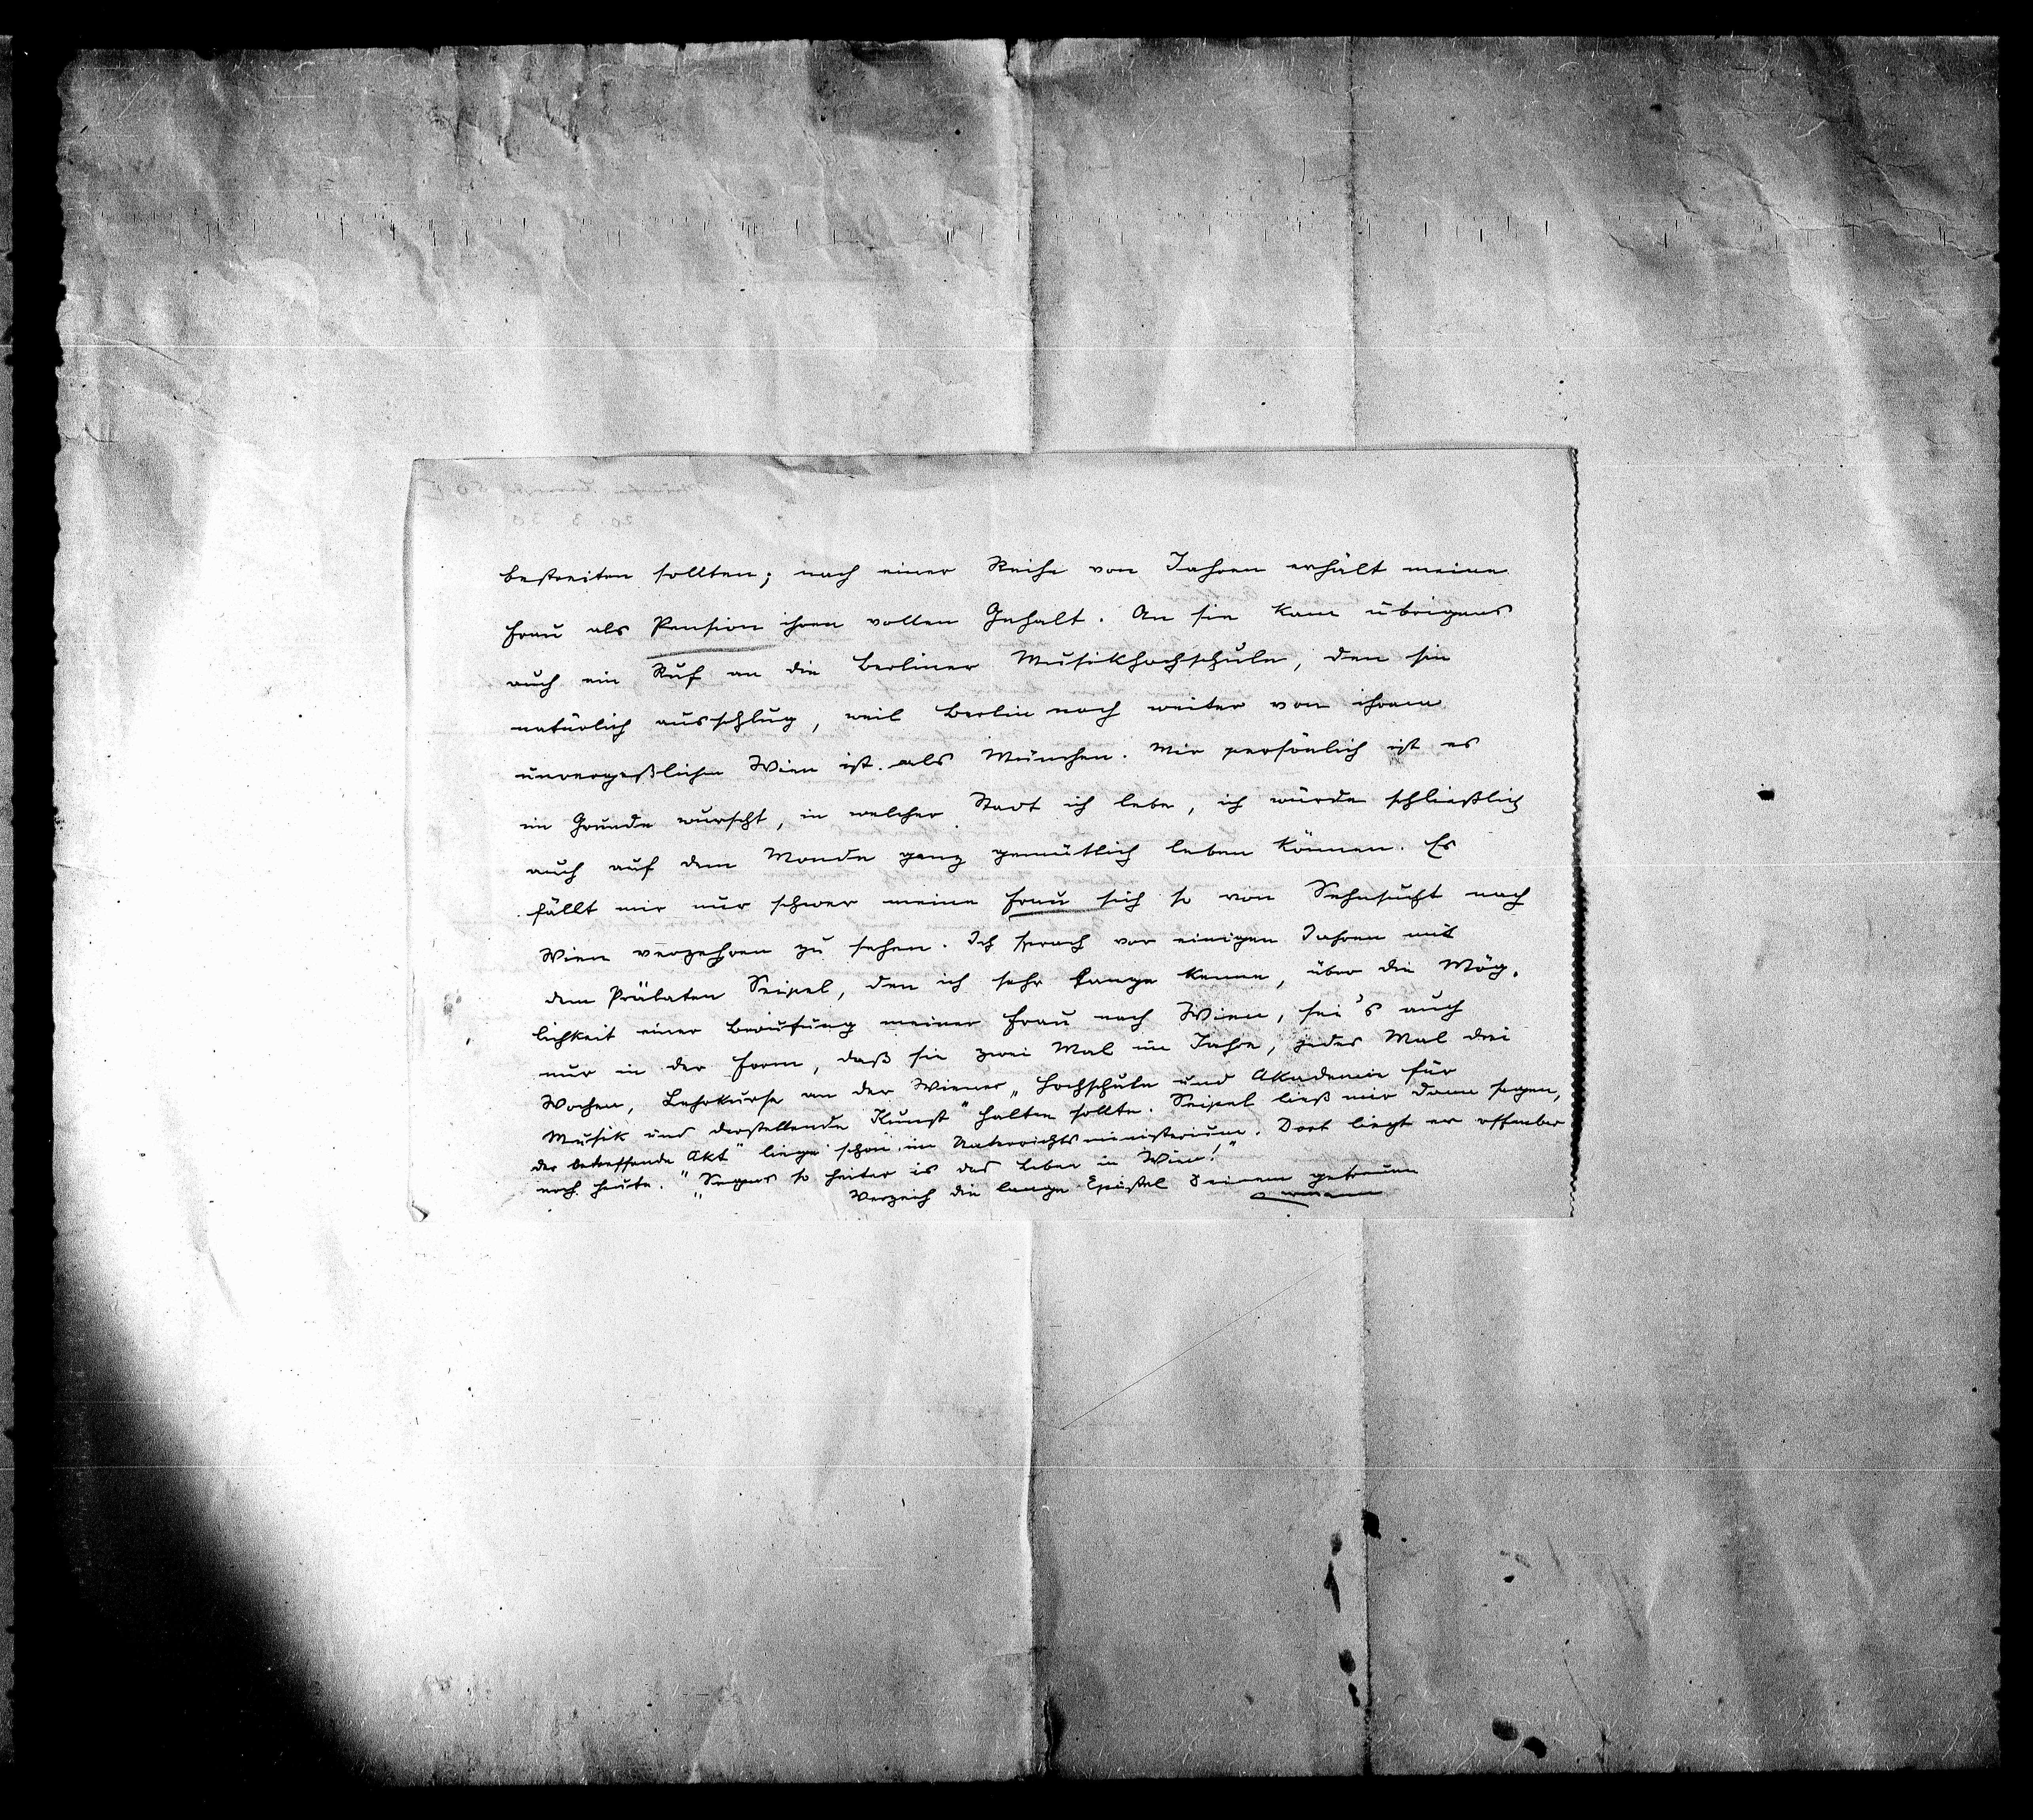 bestreiten sollten; nach einer Reihe von Jahren erhält meine
Frau als Pension ihren vollen Gehalt. An sie kam übrigens
auch ein Ruf an die Berliner Musikhochschule, den sie
natürlich ausschlug, weil Berlin noch weiter von ihrem
unvergeßlichen Wien ist als München. Mir persönlich ist es
im Grunde wurscht, in welcher Stadt ich lebe, ich würde schließlich
auch auf dem Monde ganz gemütlich leben können. Es
fällt mir nur schwer meine Frau sich so von Sehnsucht nach
Wien verzehren zu sehen. Ich sprach vor einigen Jahren mit
dem Prälaten Seipel, den ich sehr lange kenne, über die Mög-
lichkeit einer Berufung meiner Frau nach Wien, sei's auch
nur in der Form, daß sie zwei Mal im Jahre, jedes Mal drei
Wochen, Lehrkurse an der Wiener „Hochschule und Akademie für
Musik und darstellende Kunst" halten sollte. Seipel ließ mir dann sagen,
der betreffende Akt" liege schon im Unterrichtsministerium. Dort liegt er offenbar
noch heute. „Segns so heiter is das Leben in Wien!"
Verzeih die lange Epistel Deinem getreuen